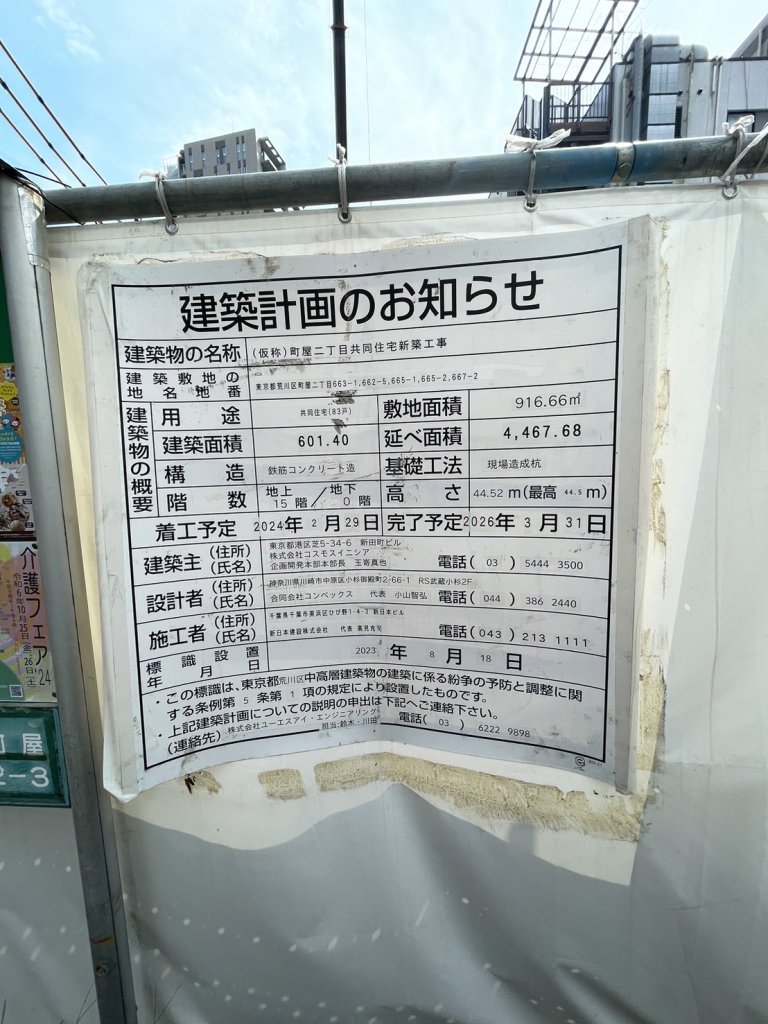 建築計画のお知らせ
建築物の名称 (仮称)町屋二丁目共同住宅新築工事
建築敷地の地名地番 東京都荒川区町屋二丁目663-1,662-5,665-1,665-2,667-2
建築物の概要
用途 共同住宅(83戸) 敷地面積 916.66㎡
建築面積 601.40 延べ面積 4,467.68
構造 鉄筋コンクリート造 基礎工法 現場造成杭
階数 地上15階/地下0階 高さ 44.52m(最高44.5m)
着工予定 2024年2月29日 完了予定 2026年3月31日
建築主(住所)(氏名) 東京都港区芝5-34-6 新田町ビル
株式会社コスモスイニシア
企画開発本部本部長 玉嵜真也 電話(03)5444 3500
設計者(住所)(氏名) 神奈川県川崎市中原区小杉御殿町2-66-1 RS武蔵小杉2F
合同会社コンベックス 代表 小山智弘 電話(044)386 2440
施工者(住所)(氏名) 千葉県千葉市美浜区ひび野1-4-3 新日本ビル
新日本建設株式会社 代表 髙見克司 電話(043)213 1111
標識設置年月日 2023年8月18日
・この標識は、東京都荒川区中高層建築物の建築に係る紛争の予防と調整に関
する条例第5条第1項の規定により設置したものです。
・上記建築計画についての説明の申出は下記へご連絡下さい。
(連絡先) 株式会社ユーエスアイ・エンジニアリング
担当:鈴木・川田 電話(03)6222 9898
介護フェア'24
令和6年10月25日(金)、26日(土)
町屋
2-3